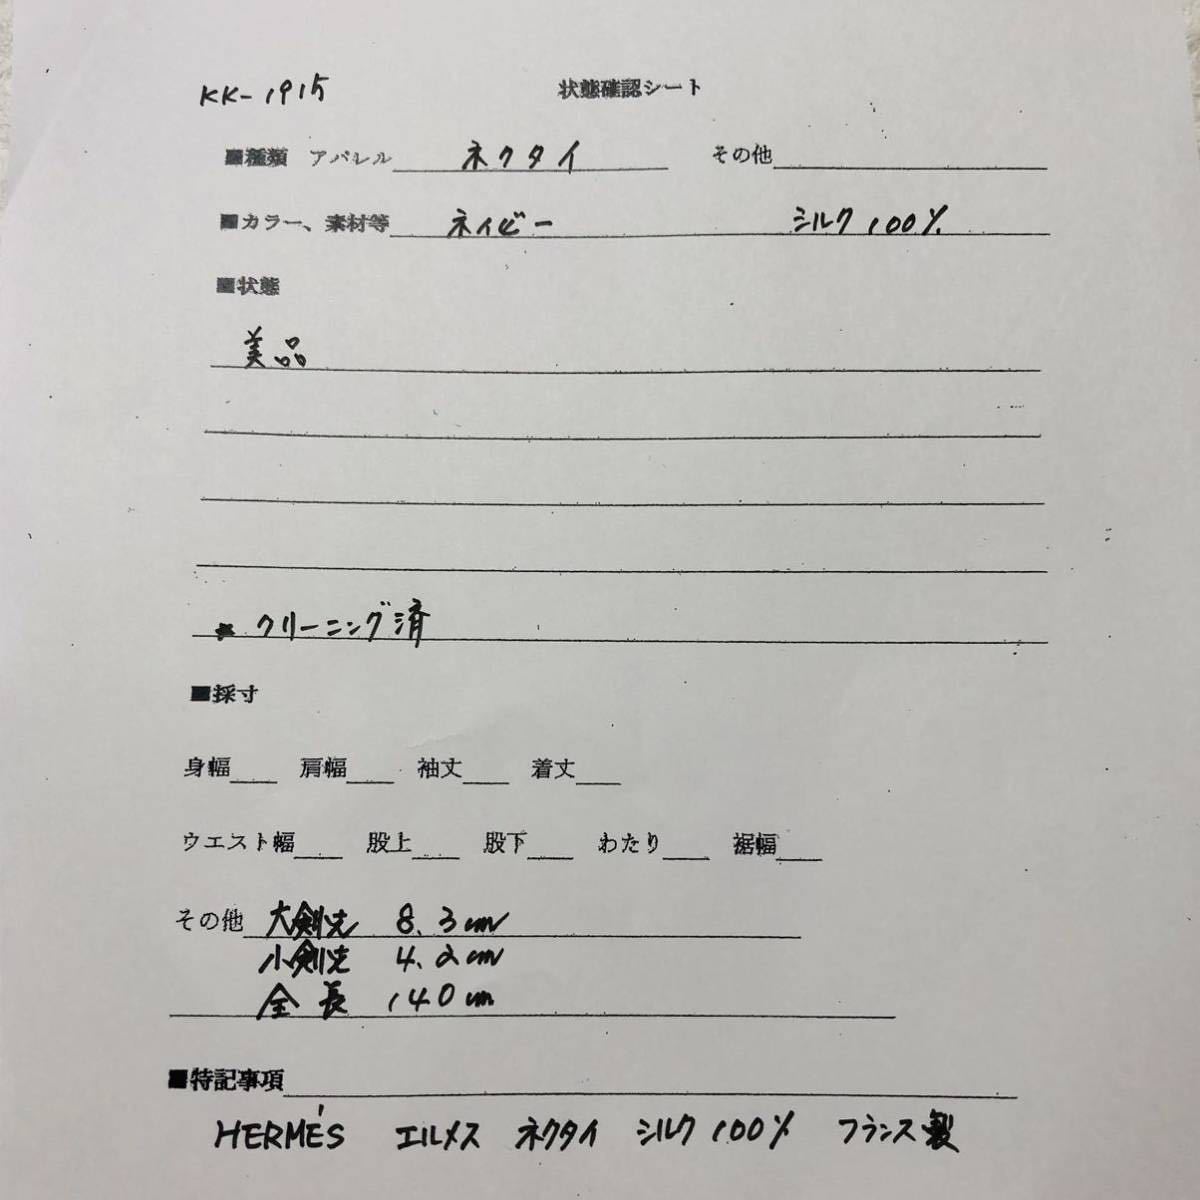 KK-1915 状態確認シート
■種類 アパレル ネクタイ その他
■カラー、素材等 ネイビー シルク100%
■状態
美品
* クリーニング済
■採寸
身幅 肩幅 袖丈 着丈
ウエスト幅 股上 股下 わたり 裾幅
その他 大剣先 8.3cm
小剣先 4.2cm
全長 140cm
■特記事項
HERMÉS エルメス ネクタイ シルク100% フランス製